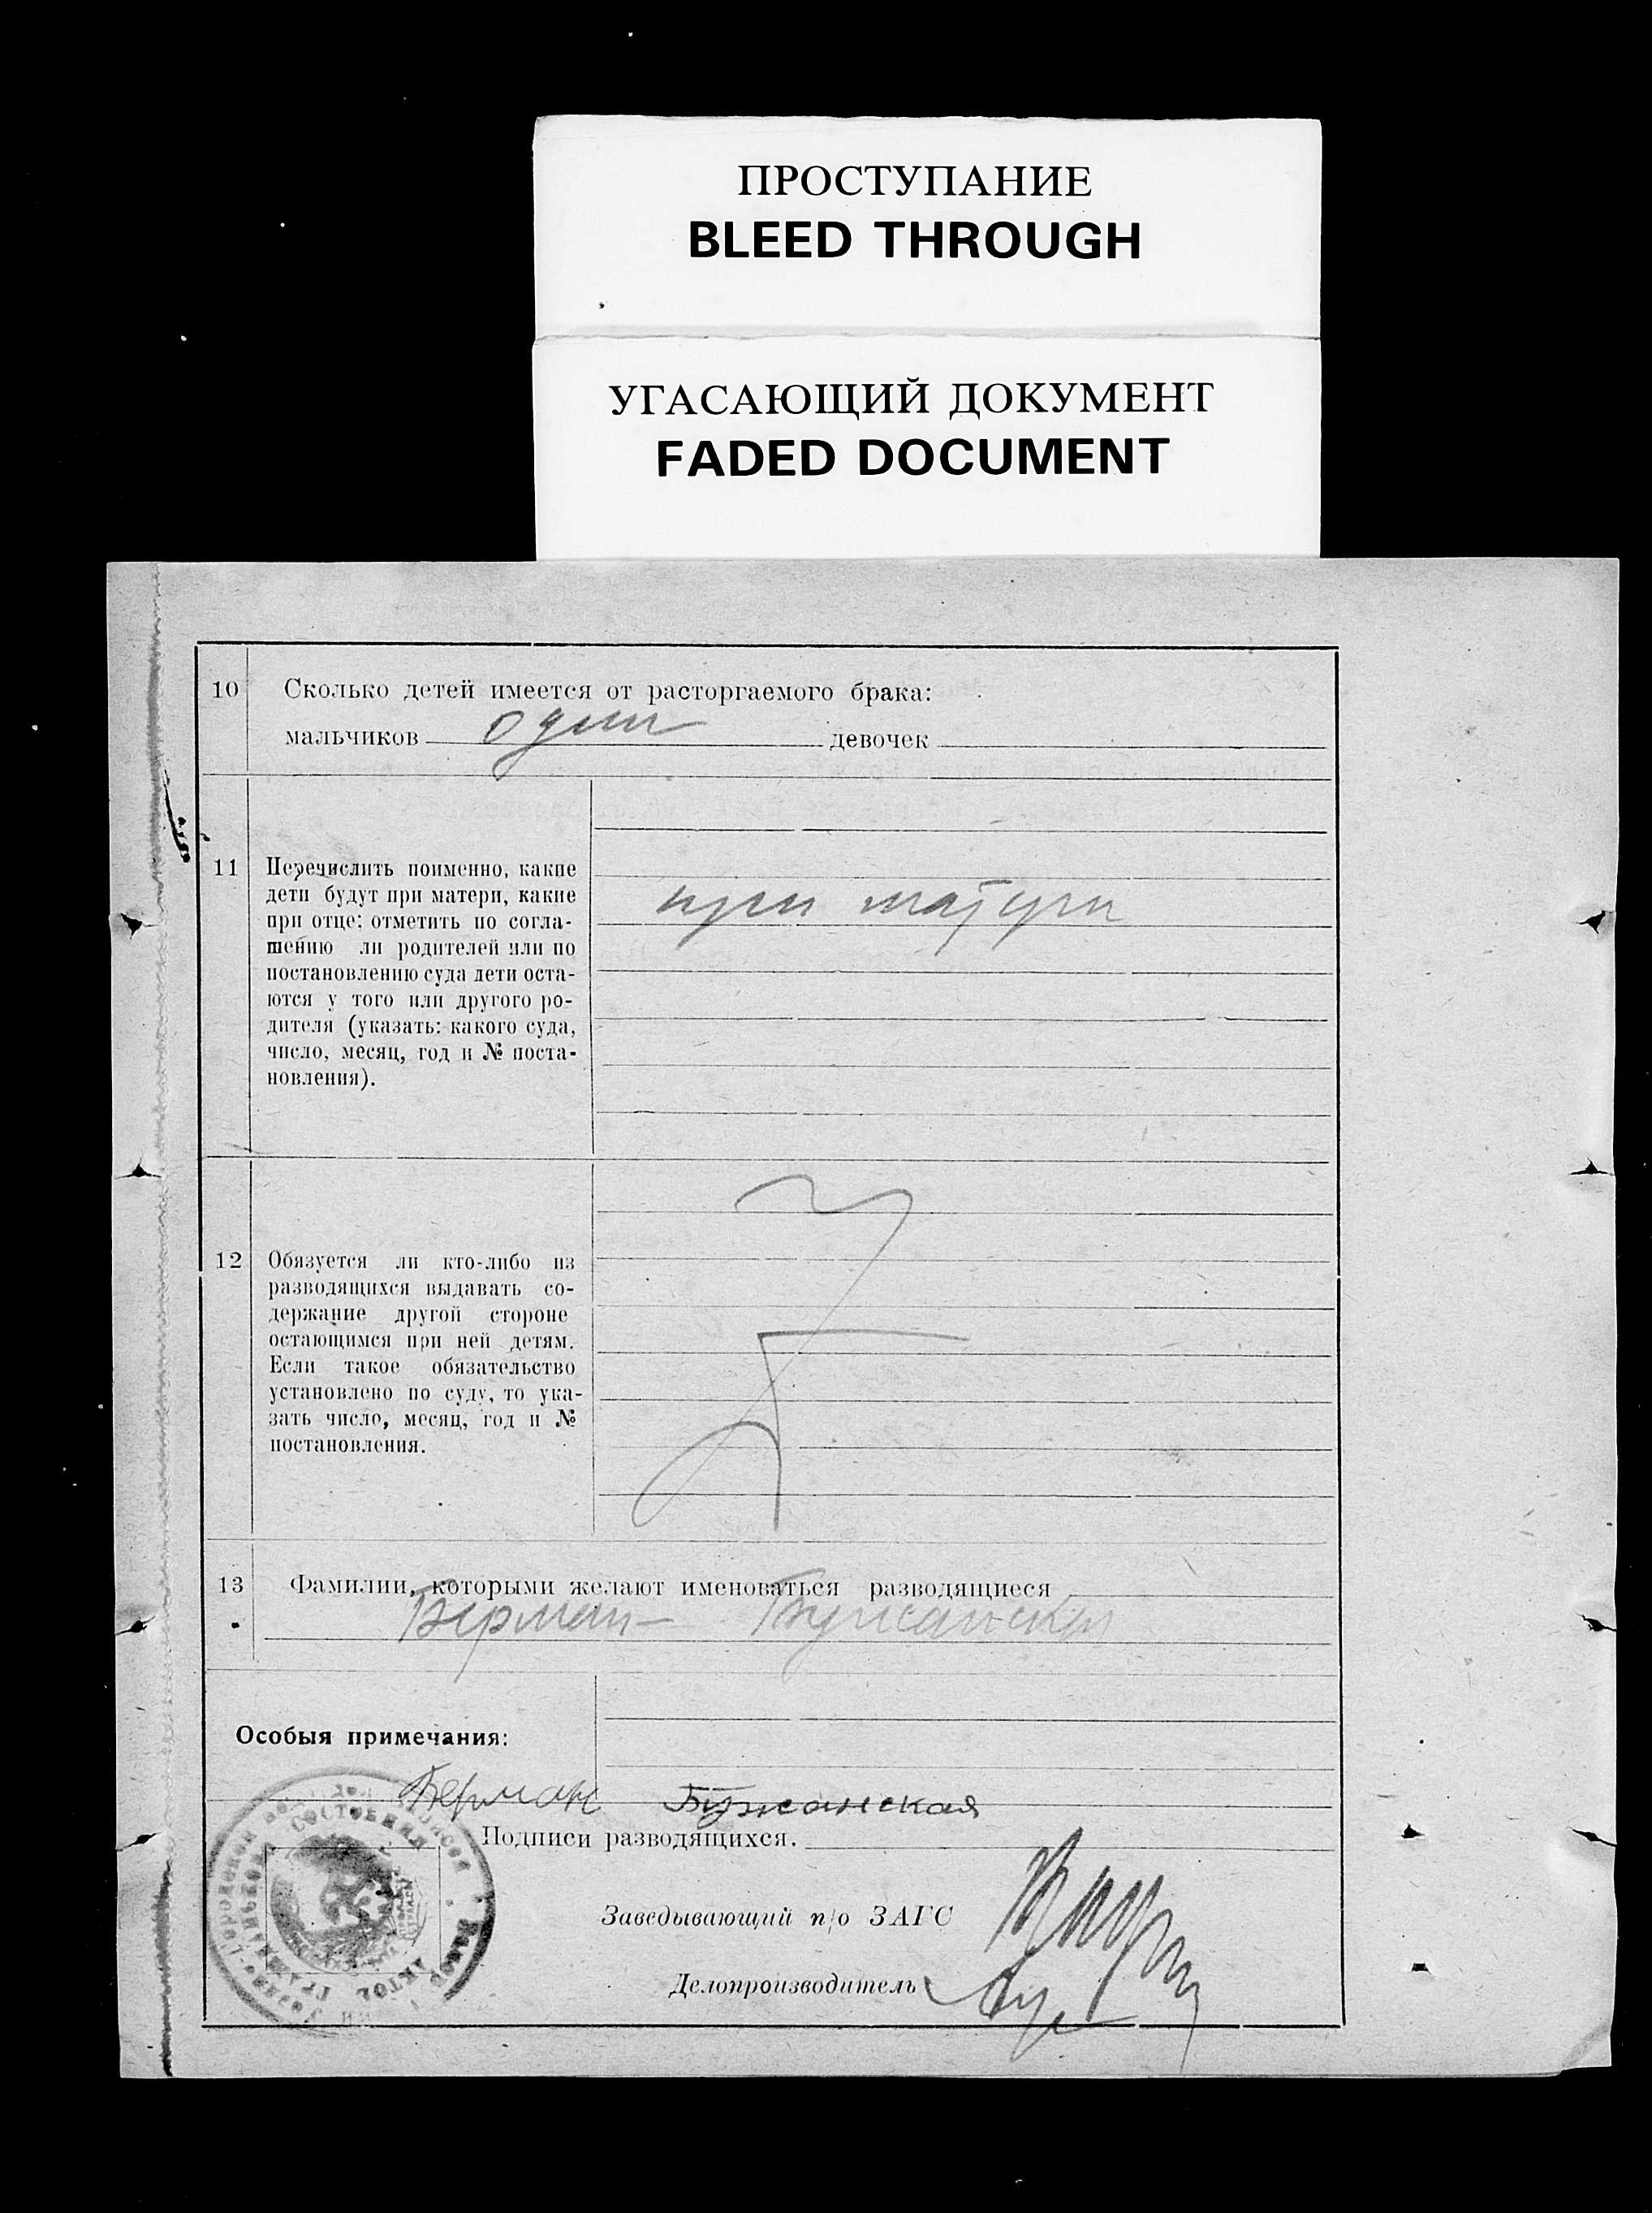 ПРОСТУПАНИЕ
BLEED THROUGH
УГАСАЮЩИЙ ДОКУМЕНТ
FADED DOCUMENT
10 Сколько детей имеется от расторгаемого брака:
мальчиков один девочек
11 Перечислить поименно, какие
дети будут при матери, какие
при отце; отметить по согла-
шению ли родителей или по
постановлению суда дети оста-
ются у того или другого ро-
дителя (указать: какого суда,
число, месяц, год и № поста-
новления).
при матери
12 Обязуется ли кто-либо из
разводящихся выдавать со-
держание другой стороне
остающимся при ней детям.
Если такое обязательство
установлено по суду, то ука-
зать число, месяц, год и №
постановления.
13 Фамилии, которыми желают именоваться разводящиеся
Берман – Бужанская
Особыя примечания:
Берман Бужанская
Подписи разводящихся.
Заведывающий п/о ЗАГС
Делопроизводитель